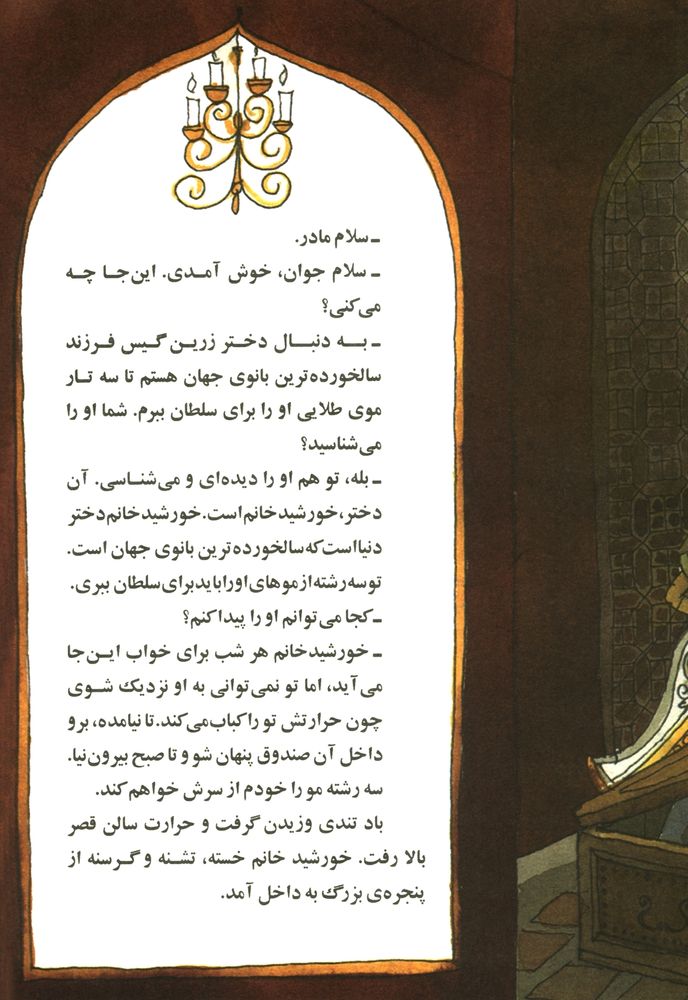 ـ سلام مادر.
ـ سلام جوان، خوش آمـدی. این‌جـا چـه
می‌کنی؟
ـ بــه دنبــال دختـر زریـن گـیس فـرزند
سالخورده‌ترین بانوی جهان هستم تا سه تـار
موی طلایی او را برای سلطان ببرم. شما او را
می‌شناسید؟
ـ بله، تو هم او را دیده‌ای و می‌شناسی. آن
دختر، خورشید خانم است. خورشید خانم دختر
دنیا است که سالخورده ترین بانوی جهان است.
تو سه رشته از موهای او را باید برای سلطان ببری.
ـ کجا می‌توانم او را پیدا کنم؟
ـ خورشید خانم هر شب برای خواب ایـن‌جا
می‌آید، اما تو نمی‌توانی به او نزدیک شـوی
چون حرارتش تو را کباب می‌کند. تا نیامده، برو
داخل آن صندوق پنهان شو و تا صبح بیرون نیا.
سه رشته مو را خودم از سرش خواهم کند.
باد تندی وزیدن گرفت و حرارت سالن قصر
بالا رفت. خورشید خانم خسته، تشنه و گـرسنه از
پنجره‌ی بزرگ به داخل آمد.